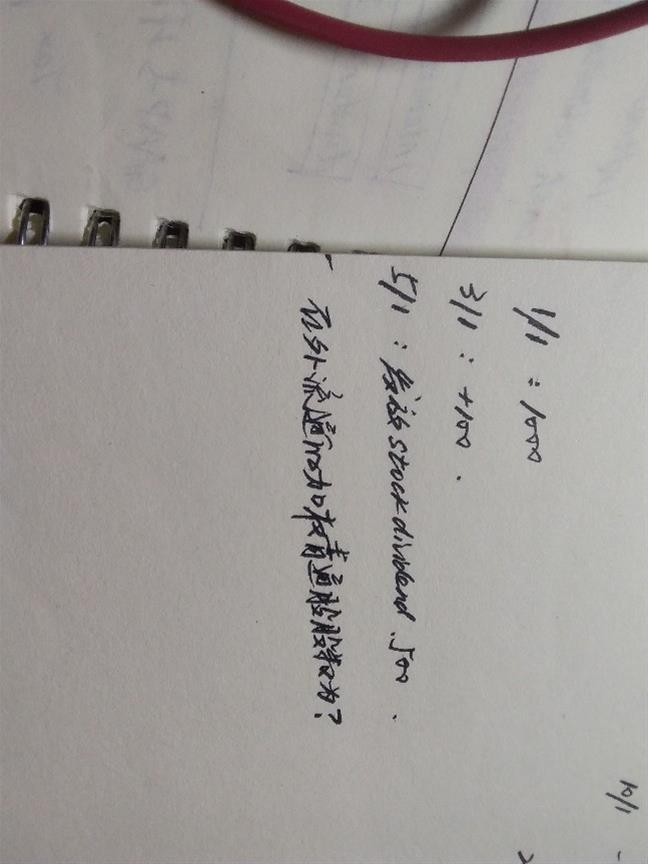 1/1 : 1000
3/1 : +100 .
5/1 : 发放 stock dividend 500 .
在外流通的加权普通股股数为?
10/1